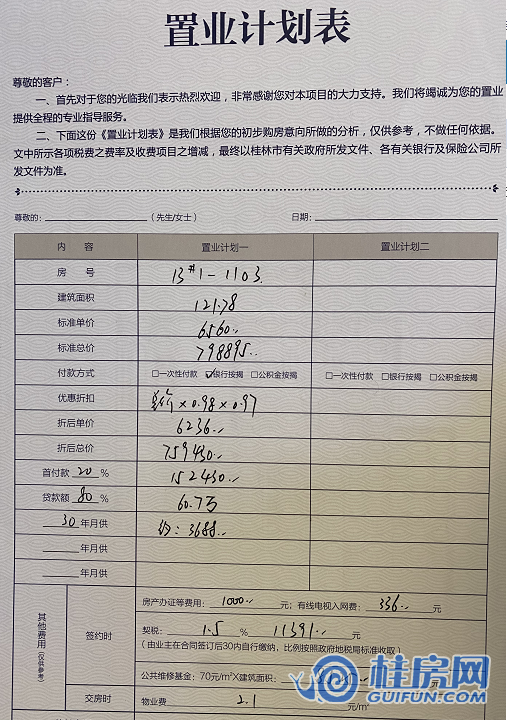 置业计划表
尊敬的客户：
一、首先对于您的光临我们表示热烈欢迎，非常感谢您对本项目的大力支持。我们将竭诚为您的置业
提供全程的专业指导服务。
二、下面这份《置业计划表》是我们根据您的初步购房意向所做的分析，仅供参考，不做任何依据。
文中所示各项税费之费率及收费项目之增减，最终以桂林市有关政府所发文件、各有关银行及保险公司所
发文件为准。
尊敬的：（先生/女士） 日期：
内 容 置业计划一 置业计划二
房 号 13#1-1103
建筑面积 121.78
标准单价 6560
标准总价 798895
付款方式 □一次性付款 ☑银行按揭 □公积金按揭 □一次性付款 □银行按揭 □公积金按揭
优惠折扣 总价×0.98×0.97
折后单价 6236
折后总价 759430
首付款 20 % 152430
贷款额 80 % 60.7万
30 年月供 约：3688
年月供
年月供
其他费用（仅供参考）
签约时
房产办证等费用：1000 元；有线电视入网费：336 元
契税：1.5 % 11391 元
（由业主在合同签订后30内自行缴纳，比例按照政府地税局标准收取）
公共维修基金：70元/m²X建筑面积：
交房时 物业费 2.1 元/m²
桂房网
GUIFUN.COM